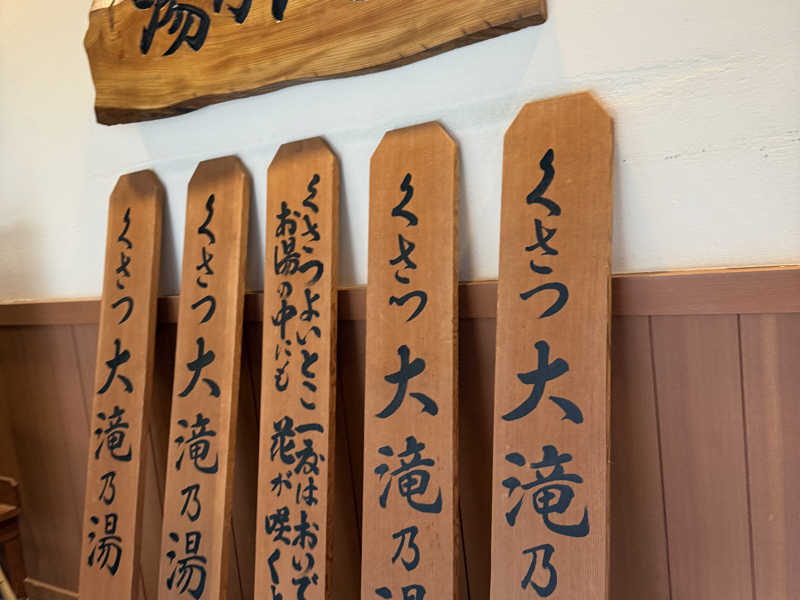 湯
くさつ大滝乃湯
くさつ大滝乃
くさつ大滝乃湯
くさつよいとこ一度はおいで
お湯の中にも花が咲く
くさつ大滝乃湯
くさつ大滝乃湯